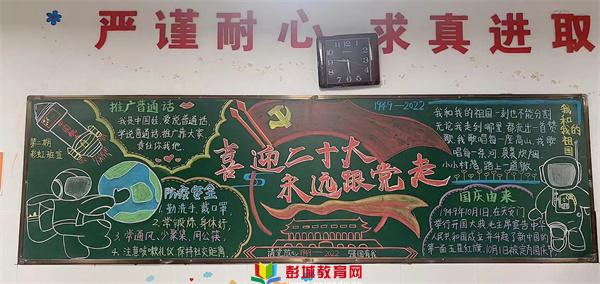 严谨耐心 求真进取
推广普通话
我是中国娃，爱说普通话，
学说普通话，推广靠大家，
责任你我他。
第二期
彩虹班宣
防疫安全
1. 勤洗手，戴口罩，
2. 常锻炼，身体好，
3. 常通风，少聚集，用公筷，
4. 注意咳嗽礼仪，保持社交距离。
喜迎二十大
永远跟党走
1949—2022
强国有我
1949—2022
我和我的祖国
我和我的祖国一刻也不能分割
无论我走到哪里都流出一首赞
歌，我歌唱每一座高山，我歌
唱每一条河，袅袅炊烟
小小村落，路上一道辙
国庆由来
1949年10月1日，在天安门
举行开国大典，毛主席宣告中华
人民共和国成立，并升起了新中国的
第一面五星红旗，10月1日被定为国庆节
彭城教育网